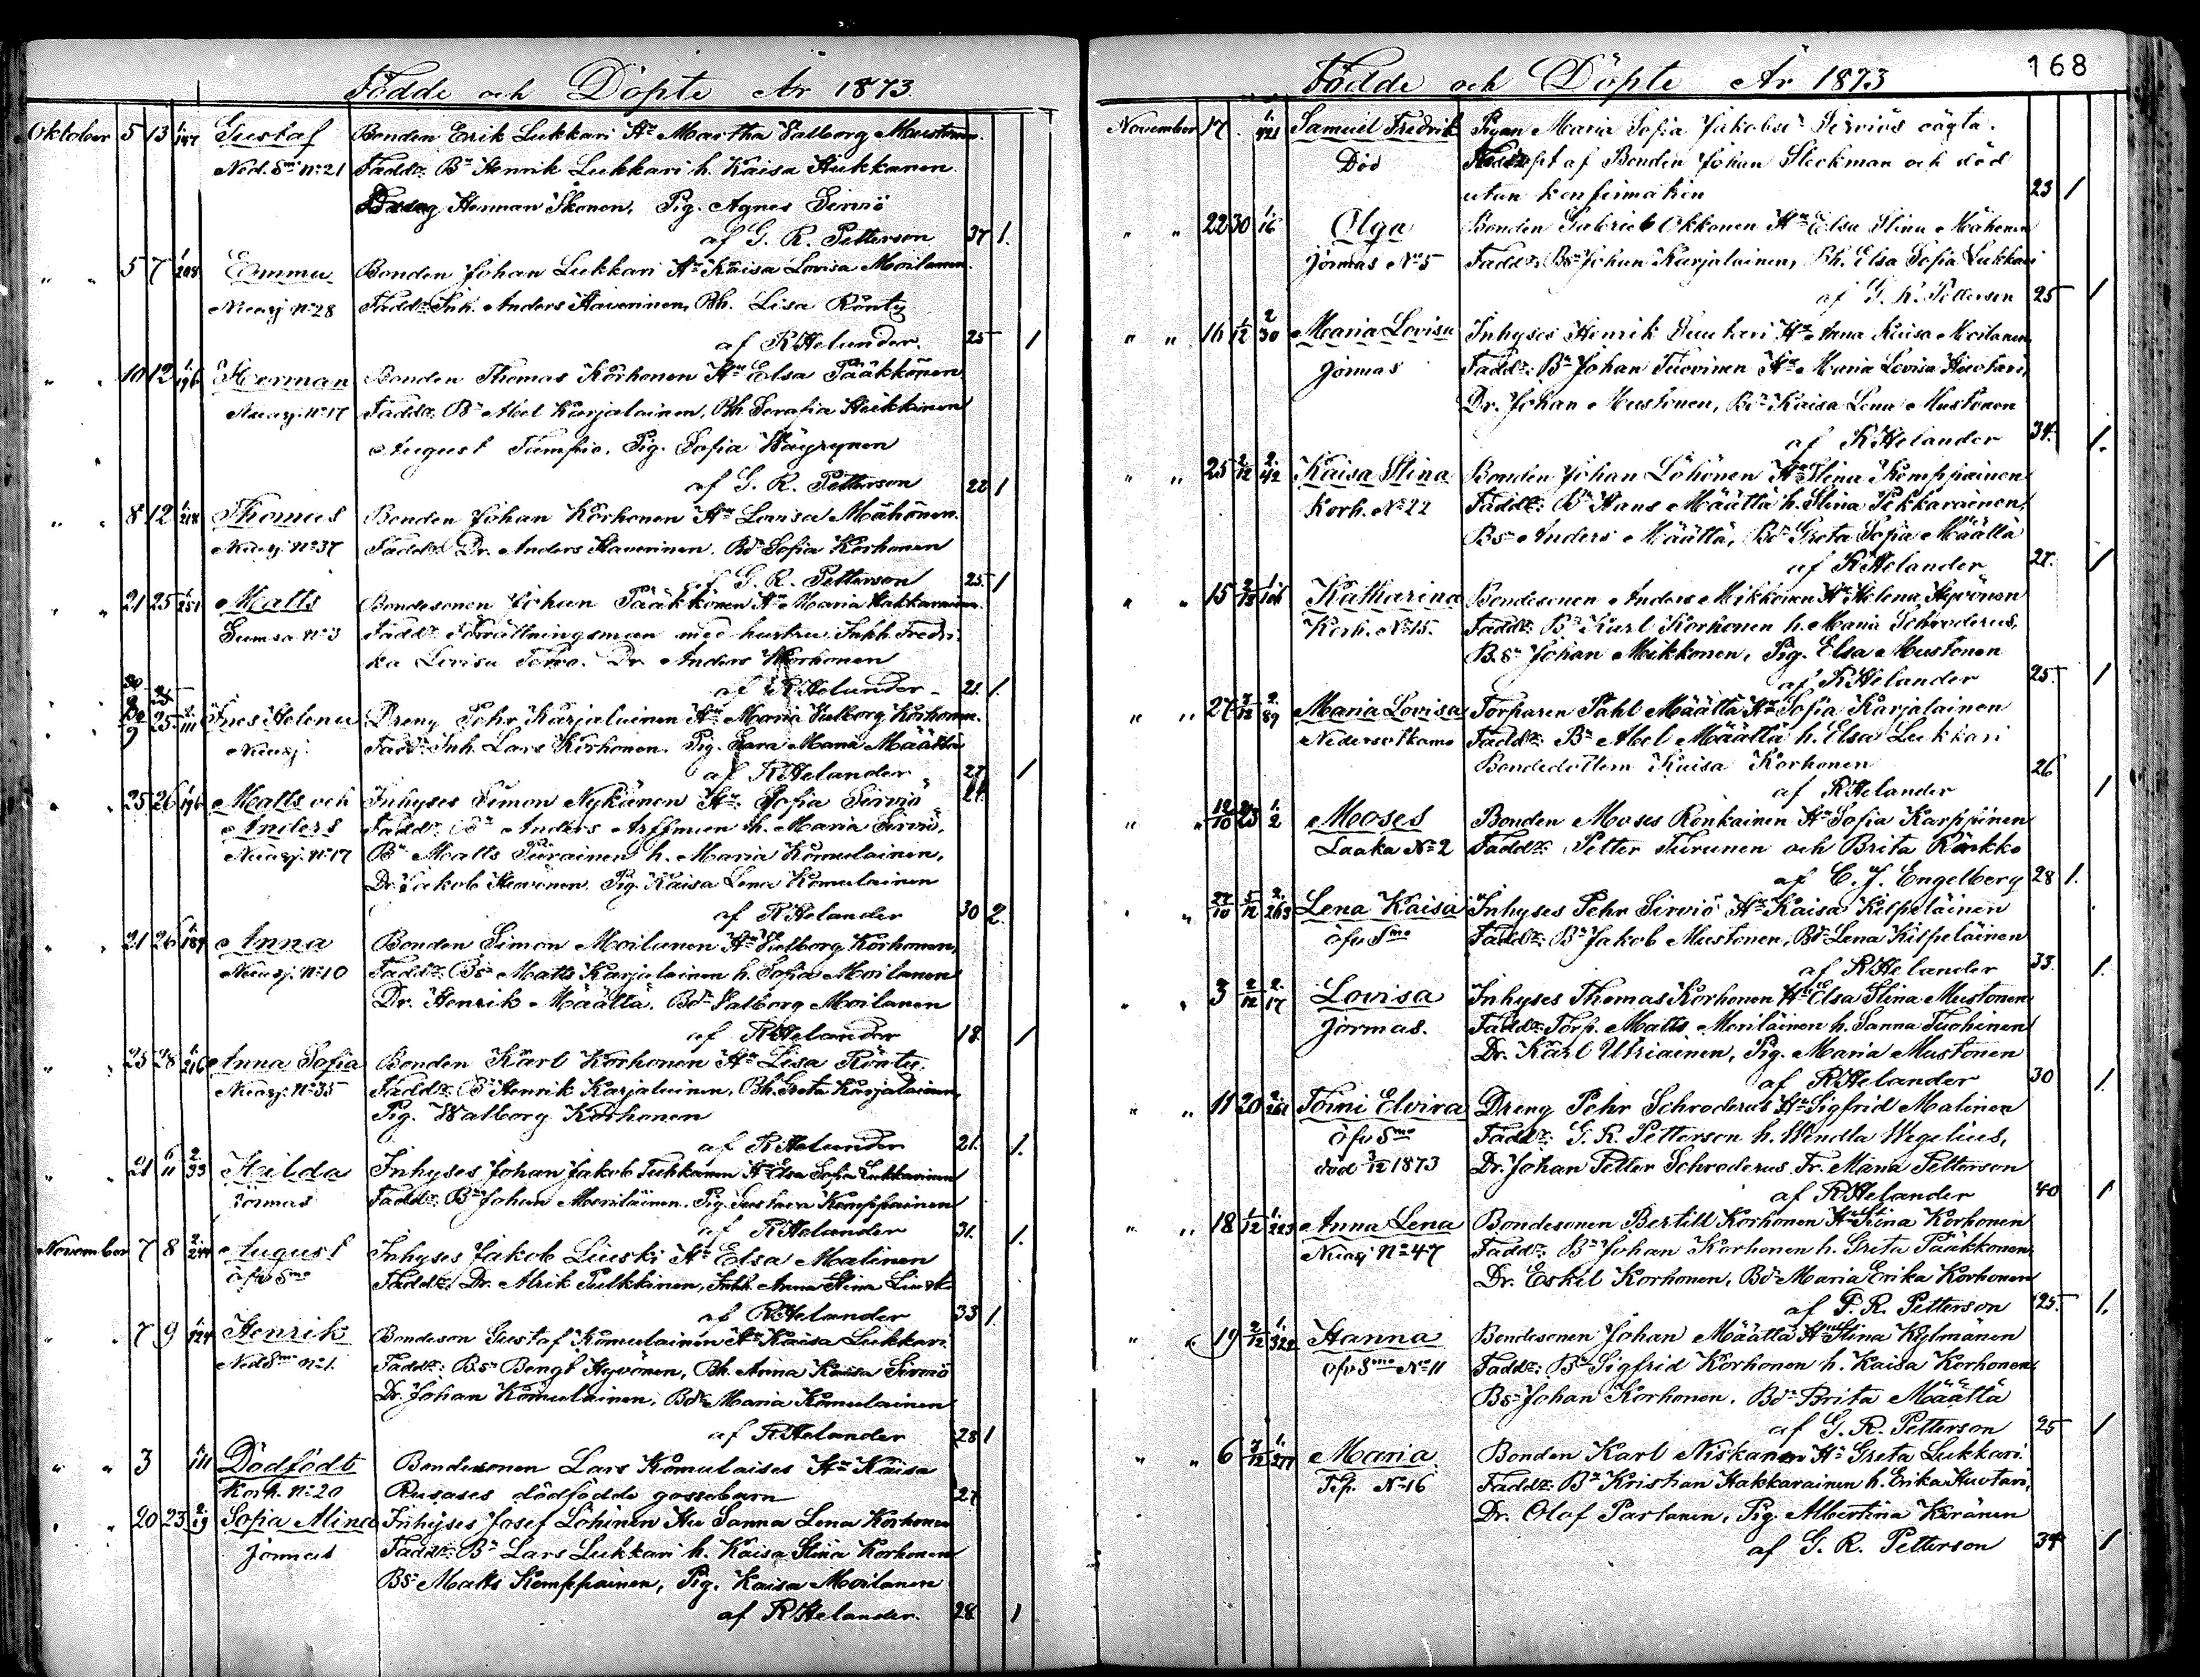 Födde och Döpte År 1873.
Oktober 5 13 Gustaf Bonden Erik Lukkari Hu Martha Valborg Mustonen.
Ned. Smo No 21 Fadd: Bn Henrik Lukkari h. Kaisa Heikkanen.
Herman Pig. Agnes Sirviö
af G. R. Petterson 37 1.
" " 5 7 Emma Bonden Johan Lukkari Hu Kaisa Lovisa Moilanen.
Nuasj No 28 Fadd: Inh. Anders Haverinen, Bh. Lisa Rönty
af R Helander. 25 1
" " 10 12 1/196 Herman Bonden Thomas Korhonen Hu Elsa Pääkkönen
Nuasj. No 17 Fadd: Bn Abel Karjalainen, Bh Serafia Heikkinen
August Pig. Sofia Wäyrynen
af G. R. Petterson 22 1
" " 8 12 Thomas Bonden Johan Korhonen Hu Lovisa Mähönen.
Nuasj No 37 Fadd: Dr. Anders Haverinen. Bdr Sofia Korhonen
af G. R. Petterson 25. 1
" " 21 25 1/251 Matts Bondesonen Johan Pääkkönen Hu Maria Hakkarainen.
No 3 Fadd: Förrättningsman med hustru. Inhh. Fredri-
ka Lovisa Dr. Anders Korhonen
af R Helander. 21. 1.
25 2/111 Ines Helena Dreng Pehr Karjalainen Hu Maria Valborg Korhonen.
Nuasj Fadd: Inh. Lars Korhonen. Pig. Sara Maria Määttä
af R Helander 27 1
" " 25 26 1/196 Matts och Inhyses Simon Nykänen Hu. Sofia Sirviö
Anders Fadd: Bn Anders Arffman h. Maria Sirviö,
Nuasj. No 17 Bn Matts Piirainen h. Maria Komulainen,
Dr. Jakob Hevonen. Pig. Kaisa Lena Komulainen
af R Helander 30 2.
" " 21 26 1/189 Anna Bonden Simon Moilanen Hu Valborg Korhonen,
Nuasj. No 10 Fadd: Bs Matts Karjalainen h. Sofia Moilanen
Dr. Henrik Määttä. Bdr Valborg Moilanen
af R Helander 18. 1
" " 25 28 1/216 Anna Sofia Bonden Karl Korhonen Hu Lisa Rönty.
Nuasj. No 35 Fadd: Bn Henrik Karjalainen, Bh. Greta Karjalainen,
Pig. Walborg Korhonen
af R Helander 21. 1.
" " 21 6/11 2/33 Hilda Inhyses Johan Jakob Hu Elsa Sofia Lukkarinen
Jormas Fadd: Bn Johan Moriläinen. Pig. Gustava Kemppainen
af R Helander 31. 1.
November 7 8 August Inhyses Jakob Liuski Hu Elsa Malinen
öfv Smo Fadd: Dr. Alrik Pulkkinen, Inhh. Anna Stina Liuski
af R Helander 33 1.
" " 7 9 1/124 Henrik Bondeson Gustaf Komulainen Hu Kaisa Lukkari.
Ned Smo No 1. Fadd: Bs Bengt Hyvönen, Bh. Anna Kaisa Sirviö
Dr. Johan Komulainen. Bdr Maria Komulainen
af R Helander 28 1
" " 3 1/111 Dödfödt Bondesonen Lars Komulaises Hu Kaisa
Korh. No 20 Rusases dödfödde gossebarn 27
" " 20 23 2/19 Sofia Mina Inhyses Josef Löhönen Hu Sanna Lena Korhonen
Jormas Fadd: Bn Lars Lukkari h. Kaisa Stina Korhonen
Bs Matts Kemppainen, Pig. Kaisa Moilanen
af R Helander. 28. 1
Födde och Döpte År 1873
168
November 17. 1/121 Samuel Fredrik Pigan Maria Sofia Jakobsdr Sirviös oägta.
Död Nöddöpt af Bonden Johan Stockman och död
utan konfirmation 23 1
" " 22 30 1/16 Olga Bonden Gabriel Okkonen Hu Elsa Stina Mähönen
Jormas No 5 Fadd: Bs Johan Karjalainen, Bh. Elsa Sofia Lukkari
af G. R. Petterson 25 1
" " 16 1/12 2/30 Maria Lovisa Inhyses Henrik Huu Anna Kaisa Moilanen
Jormas Fadd: Bn Johan Tuovinen Hu Maria Lovisa Huotari,
Dr. Johan Mustonen, Bdr Kaisa Lena Mustonen
af R Helander 34. 1.
" " 25 2/12 2/42 Kaisa Stina Bonden Johan Löhönen Hu Stina Kemppainen
Korh. No 22 Fadd: Bn Hans Määttä h. Stina Pekkarainen,
Bs Anders Määttä, Bdr Greta Sofia Määttä
af R Helander 27. 1
" " 15 Katharina Bondesonen Anders Mikkonen Hu Helena Hyvönen
Korh. No 15. Fadd: Bn Karl Korhonen h. Maria Schroderus,
Bs Johan Mikkonen, Pig. Elsa Mustonen
af R Helander 25. 1
" " 27 7/12 2/89 Maria Lovisa Torparen Pahl Määttä Hu Sofia Karjalainen
Nedersotkamo Fadd: Bn Abel Määttä h. Elsa Lukkari
Bondedottern Kaisa Korhonen 26
af R Helander 1
" " 19/10 23 1/2 Moses Bonden Moses Ronkainen Hu Sofia Karppinen
Laaka No 2 Fadd: Petter Turunen och Brita Räikkö
af C. J. Engelberg 28 1.
" " 27/10 5/12 2/263 Lena Kaisa Inhyses Pehr Sirviö Hu Kaisa Kilpeläinen
öfv Smo Fadd: Bn Jakob Mustonen, Bdr Lena Kilpeläinen
af R Helander 33. 1.
" " 3 2/12 2/17 Lovisa Inhyses Thomas Korhonen Hu Elsa Stina Mustonen
Jormas. Fadd: Torp. Matts Moriläinen h. Sanna Tuhinen
Dr. Karl Utriainen, Pig. Maria Mustonen
af R Helander 30 1.
" " 11 20 2/261 Toini Elvira Dreng Pehr Schroderus Hu Sigfrid Malinen
öfv Smo Fadd: G. R. Petterson h. Wendla Wegelius,
död 3/12 1873 Dr. Johan Petter Schroderus Fr. Maria Petterson
af R Helander 40 1
" " 18 1/12 1/223 Anna Lena Bondesonen Bertill Korhonen Hu Stina Korhonen
Nuasj No 47 Fadd: Bn Johan Korhonen h. Greta Pääkkonen
Dr. Eskil Korhonen, Bdr Maria Erika Korhonen
af G. R. Petterson 25. 1.
" " 19 2/12 1/322 Hanna Bondesonen Johan Määttä Hu Stina Kylmänen
öfv Smo No 11 Fadd: Bn Sigfrid Korhonen h. Kaisa Korhonen,
Bs Johan Korhonen. Bdr Brita Määttä
af G. R. Petterson 25 1
" " 6 7/12 1/277 Maria Bonden Karl Niskanen Hu Greta Lukkari.
Tip. No 16 Fadd: Bn Kristian Hakkarainen h. Erika Huotari,
Dr. Olaf Partanen, Pig. Albertina Keränen
af G. R. Petterson 34 1